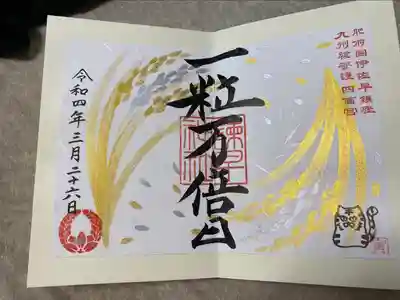 肥前國伊佐早鎮座
九州総守護 四面宮
一粒万倍日
令和四年三月二十六日